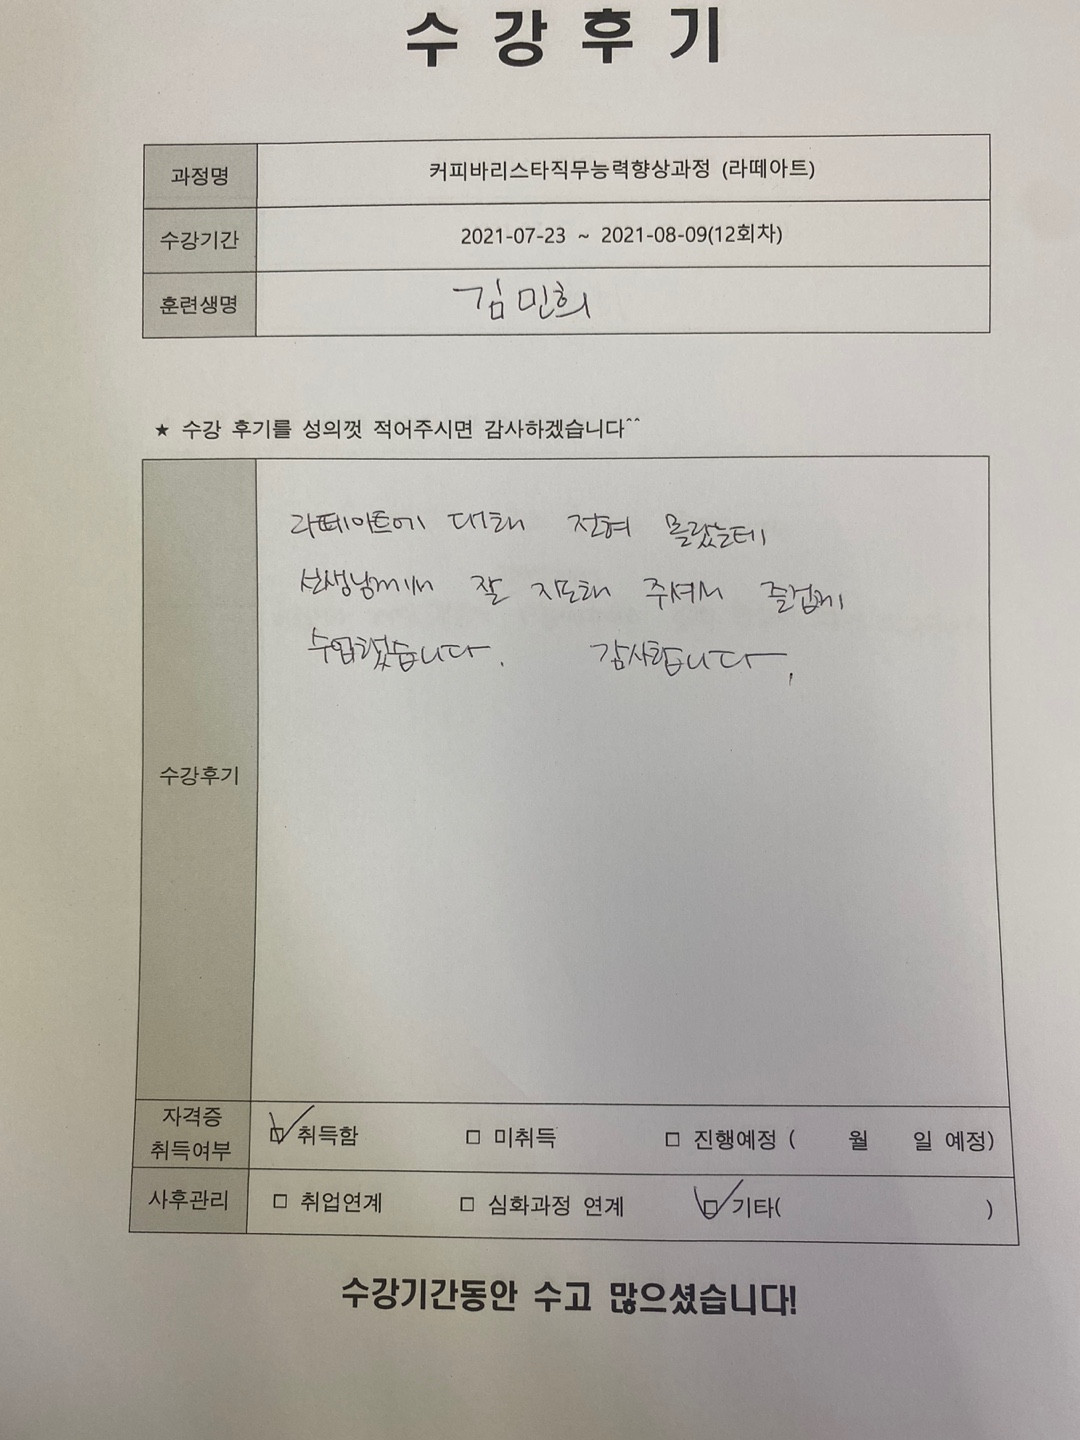 수강후기
과정명 커피바리스타직무능력향상과정 (라떼아트)
수강기간 2021-07-23 ~ 2021-08-09(12회차)
훈련생명 김민희
★ 수강 후기를 성의껏 적어주시면 감사하겠습니다^^
라떼아트에 대해 전혀 몰랐는데
선생님께서 잘 지도해 주셔서 즐겁게
수업했습니다. 감사합니다.
수강후기
자격증
취득여부 ☑ 취득함 □ 미취득 □ 진행예정 ( 월 일 예정)
사후관리 □ 취업연계 □ 심화과정 연계 ☑ 기타( )
수강기간동안 수고 많으셨습니다!